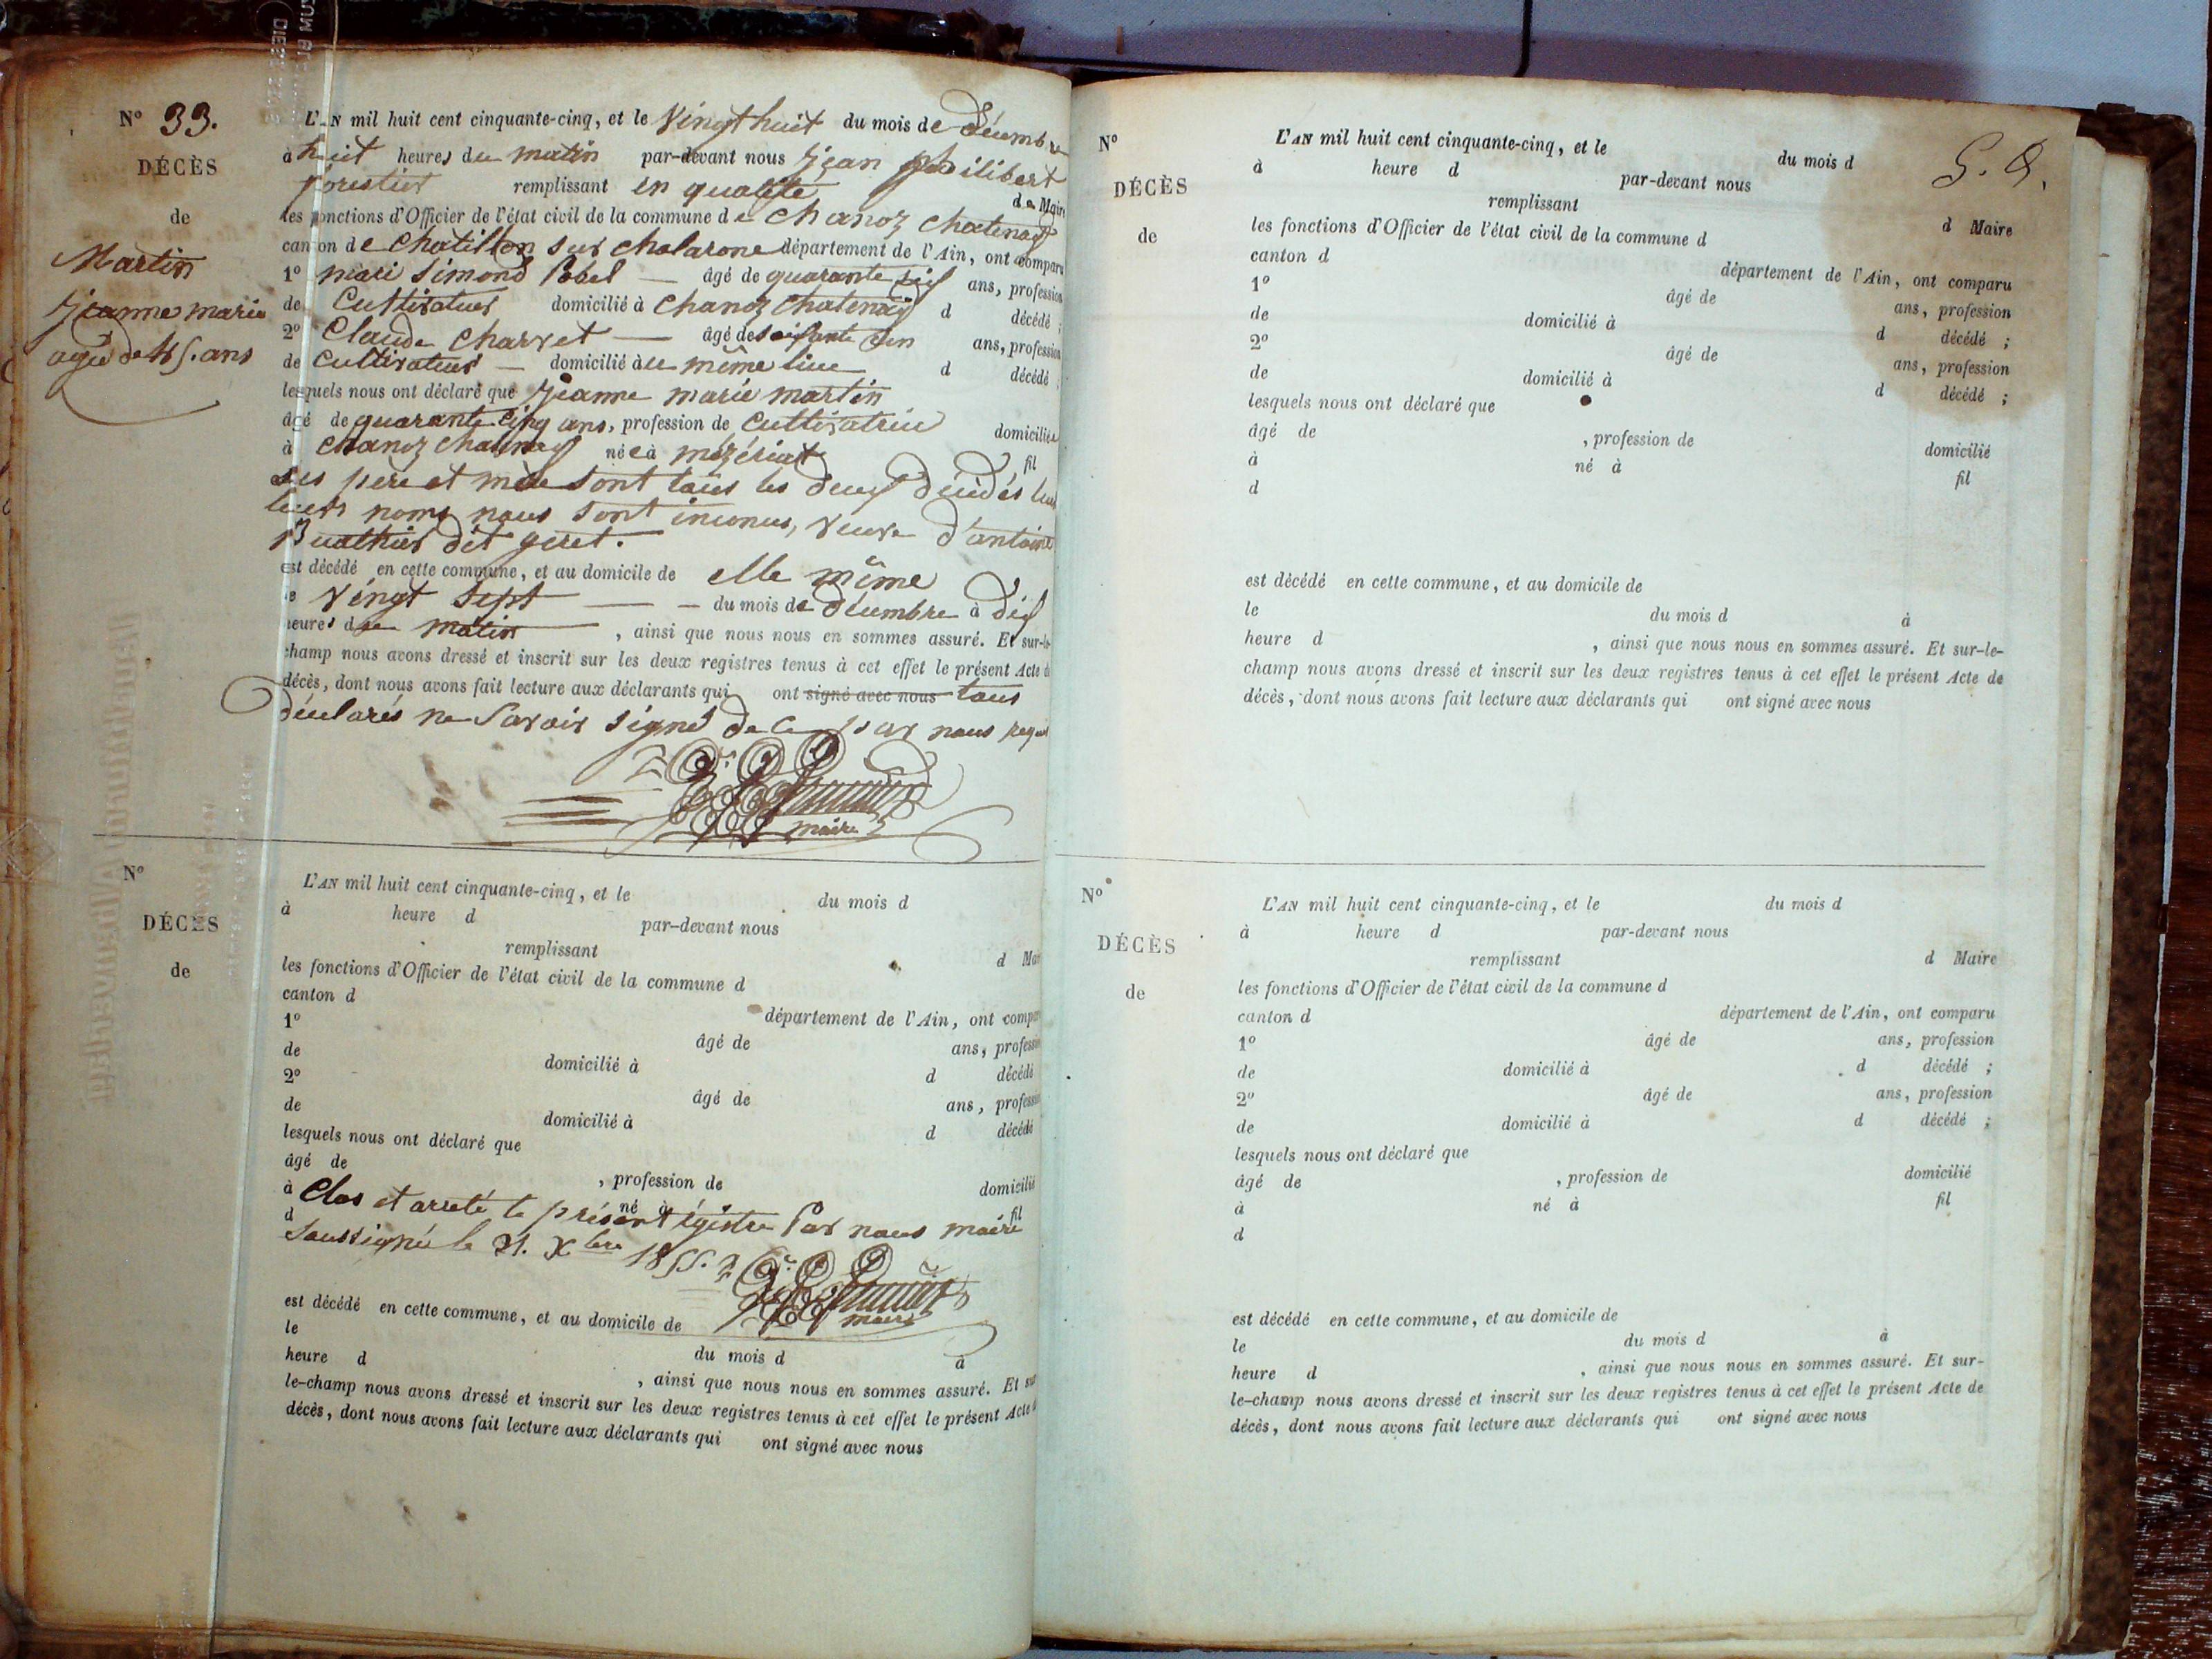 N° 33.
DÉCÈS
de
Martin
jeanne marie
agée de 45. ans
L'AN mil huit cent cinquante-cinq, et le Vingt huit du mois de décembre
à huit heures du matin par-devant nous jean philibert
forestier remplissant en qualité de Maire
les fonctions d'Officier de l'état civil de la commune de chanoz chatenay
canton de chatillon sur chalarone département de l'Ain, ont comparu
1° mari simond Pobel — âgé de quarante six ans, profession
de cultivateur domicilié à chanoz chatenay d décédé ;
2° Claude charvet — âgé de soisante un ans, profession
de cultivateur — domicilié à le même lieu d décédé ;
lesquels nous ont déclaré que jeanne marie martin
âgé de quarante cinq ans, profession de cultivatrice domiciliée
à chanoz chatenay née à mézériat fil
ses père et mère sont tous les deux décidés
leurs noms nous sont inconus, veuve d'antoine
Buathier dit geret.
est décédé en cette commune, et au domicile de elle même
le vingt sept — — du mois de décembre à dix
heures du matin , ainsi que nous nous en sommes assuré. Et sur-le-
champ nous avons dressé et inscrit sur les deux registres tenus à cet effet le présent Acte de
décès, dont nous avons fait lecture aux déclarants qui ont signé avec nous tous
déclarés ne savoir signé de ce par nous requis
maire
N°
DÉCÈS
de
L'AN mil huit cent cinquante-cinq, et le du mois d
à heure d par-devant nous
remplissant d Maire
les fonctions d'Officier de l'état civil de la commune d
canton d département de l'Ain, ont comparu
1° âgé de ans, profession
de domicilié à d décédé
2° âgé de ans, profession
de domicilié à d décédé
lesquels nous ont déclaré que
âgé de , profession de domicilié
à né à fil
d
Clos et arreté le présent régistre Par nous maire
soussigné le 31. Xbre 1855.
maire
est décédé en cette commune, et au domicile de
le du mois d à
heure d , ainsi que nous nous en sommes assuré. Et sur-
le-champ nous avons dressé et inscrit sur les deux registres tenus à cet effet le présent Acte de
décès, dont nous avons fait lecture aux déclarants qui ont signé avec nous
N°
DÉCÈS
de
L'AN mil huit cent cinquante-cinq, et le du mois d
à heure d par-devant nous
remplissant d Maire
les fonctions d'Officier de l'état civil de la commune d
canton d département de l'Ain, ont comparu
1° âgé de ans, profession
de domicilié à d décédé ;
2° âgé de ans, profession
de domicilié à d décédé ;
lesquels nous ont déclaré que
âgé de , profession de domicilié
à né à fil
d
est décédé en cette commune, et au domicile de
le du mois d à
heure d , ainsi que nous nous en sommes assuré. Et sur-le-
champ nous avons dressé et inscrit sur les deux registres tenus à cet effet le présent Acte de
décès, dont nous avons fait lecture aux déclarants qui ont signé avec nous
N°
DÉCÈS
de
L'AN mil huit cent cinquante-cinq, et le du mois d
à heure d par-devant nous
remplissant d Maire
les fonctions d'Officier de l'état civil de la commune d
canton d département de l'Ain, ont comparu
1° âgé de ans, profession
de domicilié à d décédé ;
2° âgé de ans, profession
de domicilié à d décédé ;
lesquels nous ont déclaré que
âgé de , profession de domicilié
à né à fil
d
est décédé en cette commune, et au domicile de
le du mois d à
heure d , ainsi que nous nous en sommes assuré. Et sur-
le-champ nous avons dressé et inscrit sur les deux registres tenus à cet effet le présent Acte de
décès, dont nous avons fait lecture aux déclarants qui ont signé avec nous